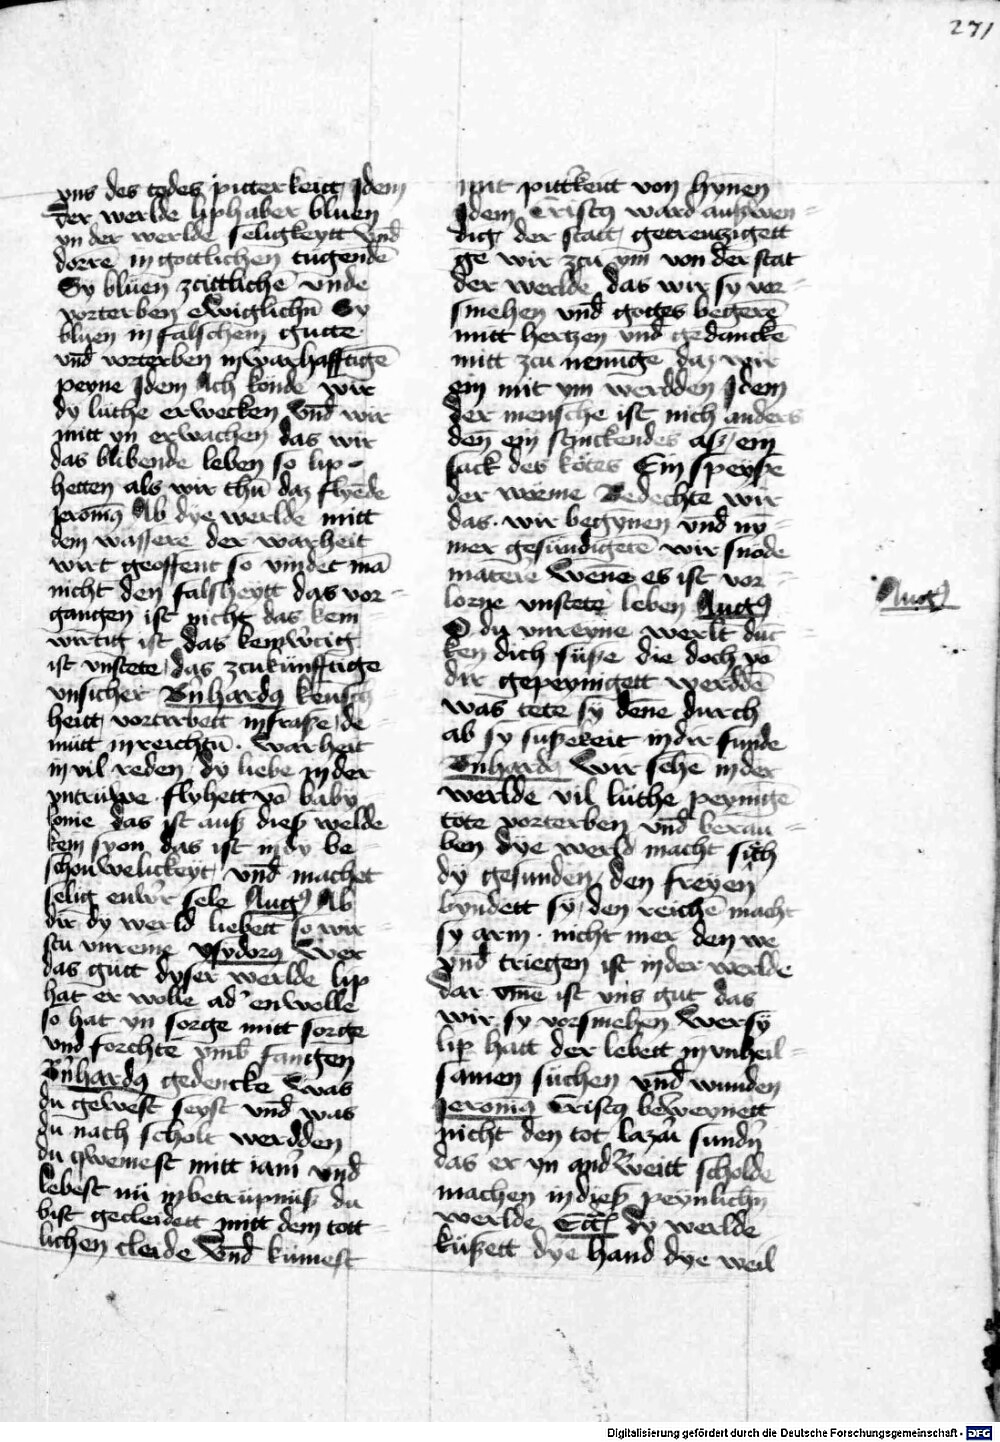 271
vns des todes pitterkeitt Idem
der werlde liphaber bluen
yn der werlde seligkeytt vnd̄
dorrē in gottlichen tugendē
Sy bluen zcittlichē vnde
vorterben ewiglichn̄ Sy
bluen in falschem gutte
vnd̄ vorterben in warhafftigē
peyne Idem Ach konde wir
dy luthe erwecken vnd̄ wir
mitt yn erwachen das wir
das blibende leben so lip
hetten als wir thū daz flyēde
Jeronimꝰ Ab dye werlde mitt
dem wassere der warheit
wirt geoffent so vindet mā
nicht den falsheytt das vor-
gangen ist nicht das kem-
wirtig ist das kemwirtig
ist vnstete das zcukunfftige
vnsicher Bn̄hardꝰ keusch-
heitt vorterbett in frasze de-
mutt in reichtū · warheit
in vil reden dy liebe in der
vntruwe · flyhett vō baby-
lonie das ist ausz diesz welde
kein syon das ist in dy be-
schouwelickeyt vnd̄ machet
selig euwr̄ sele Augꝰ Ab
dir dy werld liebett so wir-
stu vnreine ysydorꝰ wer
das gutt dyser werlde lip
hat er wolle ad' enwolle
so hat yn sorge mitt sorge
vnd forchte vmb fangen
Bn̄hardꝰ gedencke was
du gewest seyst vnd was
du nach scholt werdden
du qwemest mitt iam̄ vnd̄
lebest nu in betrupnusz du
bist gecleidett mitt dem tott-
lichen cleide vnd̄ kumest
mit pittkeitt von hynen
Idem Cristꝰ ward auszwen-
dig der statt getreutzigett
ge wir zcu ym von der stat
der werlde das wir sy vor-
smehen vnd̄ gottes begerē
mitt hertzen vnd̄ gedanckē
mitt zcu nemige daz wir
ein mit ym werdden Idem
der mensche ist nich anders
den ein stinckendes asz ein
sack des kotes Ein speysze
der wurme Bedechte wir
das · wir begynen vnd̄ ny-
mer gesundigetē wir snode
materē wene es ist vor-
lorne vnstete leben Augꝰ
O du vnreyne werlt dūc-
ken dich susze die doch vō
dir gepeynigett werddē
was tete sy dene durch
ab sy suszekeit in dir funde
Bn̄hardꝰ Wir sehē in der
werlde vil luthe peynigē
tote vorterben vnd̄ berau-
ben dye werld macht sich
dy gesunden den freyen
byndett sy den reichē macht
sy arm · nicht mer den we
vnd̄ triegen ist in der werlde
dar vmē ist vns gut das
wir sy vorsmehen wer sy
lip hatt der lebett in vnheil-
samen suchen vnd̄ wunden
Jeronimꝰ Cristꝰ beweynett
nicht den tot lazar̄i sundn̄
das er yn andr̄weitt scholde
machen in diesz peynlichn̄
werlde Ecc̄l dy werlde
kuszett dye hand dye weil
Augꝰ
Digitalisierung gefördert durch die Deutsche Forschungsgemeinschaft - DFG